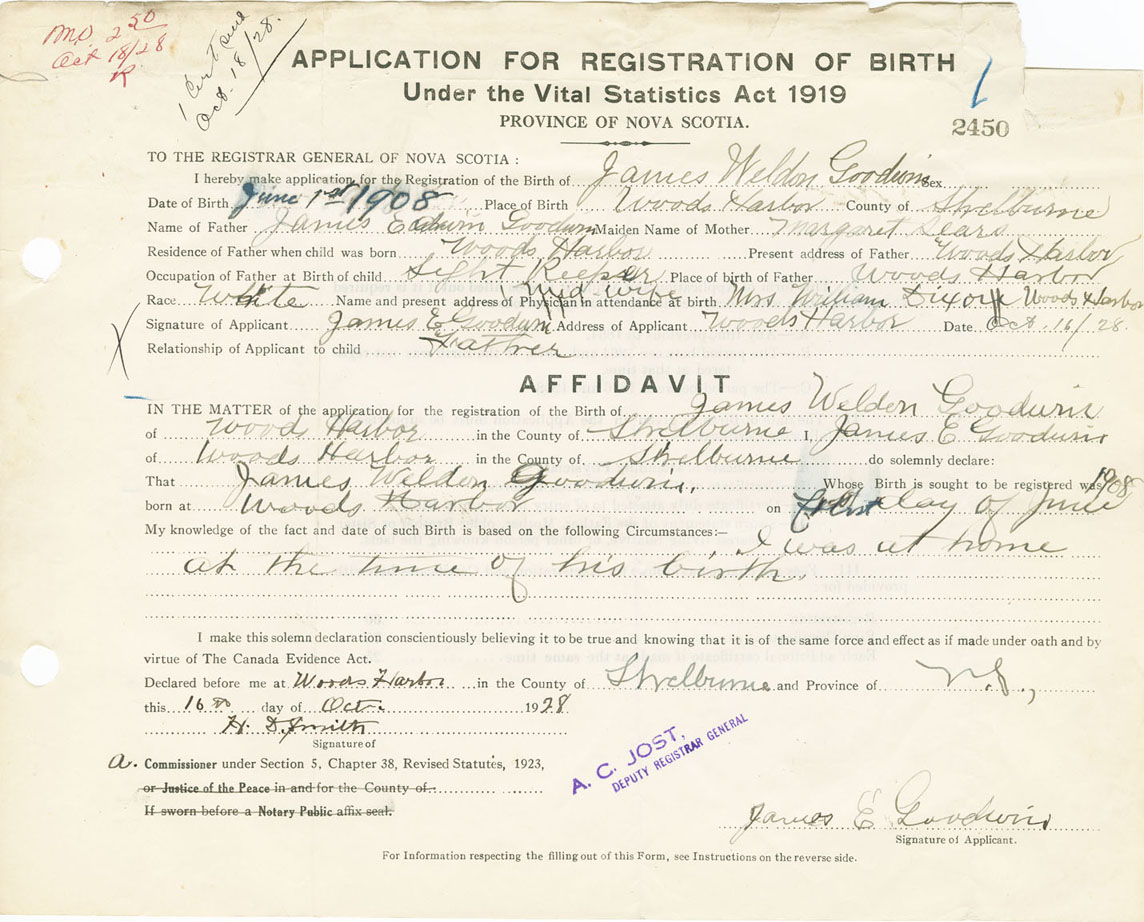 M.O. 2 50
Oct 18/28
R
1 Cert send
Oct. 18/28.
APPLICATION FOR REGISTRATION OF BIRTH
Under the Vital Statistics Act 1919
PROVINCE OF NOVA SCOTIA.
2450
TO THE REGISTRAR GENERAL OF NOVA SCOTIA :
I hereby make application for the Registration of the Birth of James Weldon Goodwin Sex
Date of Birth June 1st 1908 Place of Birth Woods Harbor County of Shelburne
Name of Father James Edwin Goodwin Maiden Name of Mother Margaret Sears
Residence of Father when child was born Woods Harbor Present address of Father Woods Harbor
Occupation of Father at Birth of child Light Keeper Place of birth of Father Woods Harbor
Race White Name and present address of Physician in attendance at birth Mid wife Mrs William Dixon Woods Harbor
Signature of Applicant James E Goodwin Address of Applicant Woods Harbor Date Oct. 16/28.
Relationship of Applicant to child Father
AFFIDAVIT
IN THE MATTER of the application for the registration of the Birth of James Weldon Goodwin
of Woods Harbor in the County of Shelburne I, James E Goodwin
of Woods Harbor in the County of Shelburne do solemnly declare:
That James Weldon Goodwin, Whose Birth is sought to be registered was 1908
born at Woods Harbor on first day of June
My knowledge of the fact and date of such Birth is based on the following Circumstances:— I was at home
at the time of his birth.
I make this solemn declaration conscientiously believing it to be true and knowing that it is of the same force and effect as if made under oath and by
virtue of The Canada Evidence Act.
Declared before me at Woods Harbor in the County of Shelburne and Province of N.S.,
this 16 day of Oct. 1928
H. D. Smith
Signature of
a. Commissioner under Section 5, Chapter 38, Revised Statutes, 1923,
or Justice of the Peace in and for the County of
If sworn before a Notary Public affix seal.
A. C. JOST,
DEPUTY REGISTRAR GENERAL
James E Goodwin
Signature of Applicant.
For Information respecting the filling out of this Form, see Instructions on the reverse side.